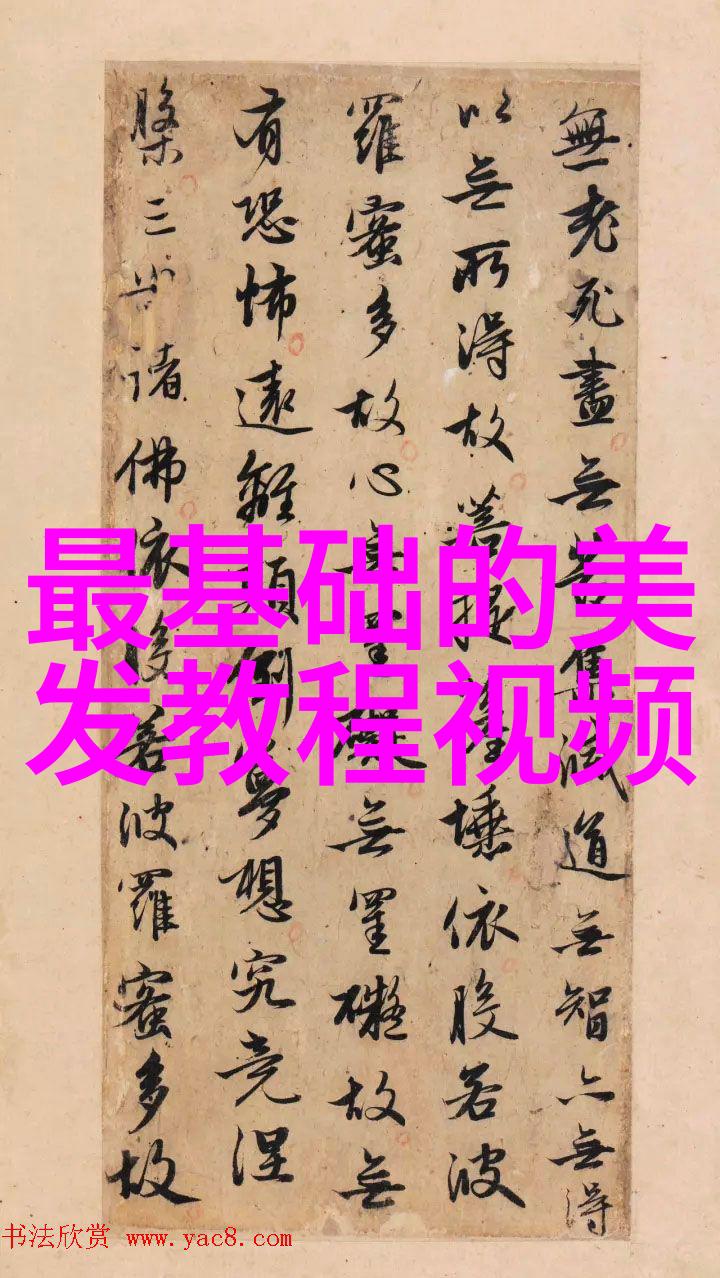 無老死盡無苦集滅道無智亦無得
以無所得故菩提薩埵依般若波
羅蜜多故心無罣礙無罣礙故無
有恐怖遠離顛倒夢想究竟涅
槃三世諸佛依般若波羅蜜多故
最基础的美
发教程视频
书法欣赏 www.yac8.com